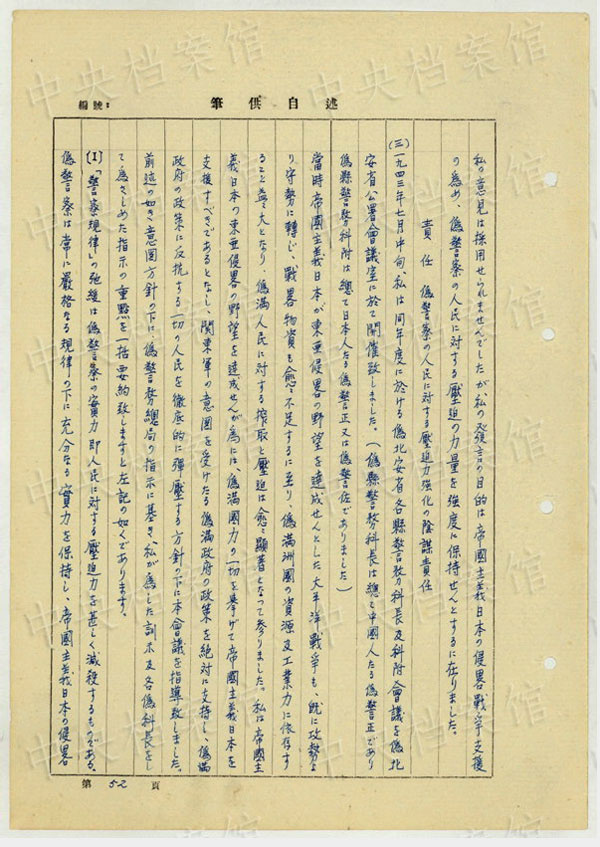 編號：
筆供自述
私の意見は採用せられませんでしたが、私の発言の目的は帝國主義日本の侵畧戰爭支援
の為め、偽警察の人民に対する壓迫の力量を強度に保持せんとするに在りました。
責任 偽警察の人民に対する壓迫力強化の陰謀責任
(三)一九四三年七月中旬、私は同年度に於ける偽北安省各縣警務科長及科附会議を偽北
安省公署会議室に於て開催致しました。(偽縣警務科長は總て中國人たる偽警正であり
偽縣警務科附は總て日本人たる偽警正又は偽警佐でありました)
當時帝國主義日本が東亜侵畧の野望を達成せんとした太平洋戰爭も、既に攻勢よ
り守勢に轉じ、戰畧物資も愈々不足するに至り、偽満洲國の資源及工業力に依存す
ること益々大となり、偽満人民に対する搾取と壓迫は愈々顕著となって参りました。私は帝國主
義日本の東亜侵畧の野望を達成せんが為には、偽満國力の一切を挙げて帝國主義日本を
支援すべきであるとなし、関東軍の意圖を受けたる偽満政府の政策を絶対に支持し、偽満
政府の政策に反抗する一切の人民を徹底的に彈壓する方針の下に本会議を指導致しました。
前述の如き意圖方針の下に、偽警務總局の指示に基き、私が為した訓示及各偽科長をし
て為さしめた指示の重點を一括要約致しますと左記の如くであります。
(I)「警察規律」の弛緩は偽警察の實力即人民に対する壓迫力を甚しく減殺するものである。
偽警察は常に嚴格なる規律の下に充分なる實力を保持し、帝國主義日本の侵畧
第 52 頁
中央档案馆
中央档案馆
中央档案馆
中央档案馆